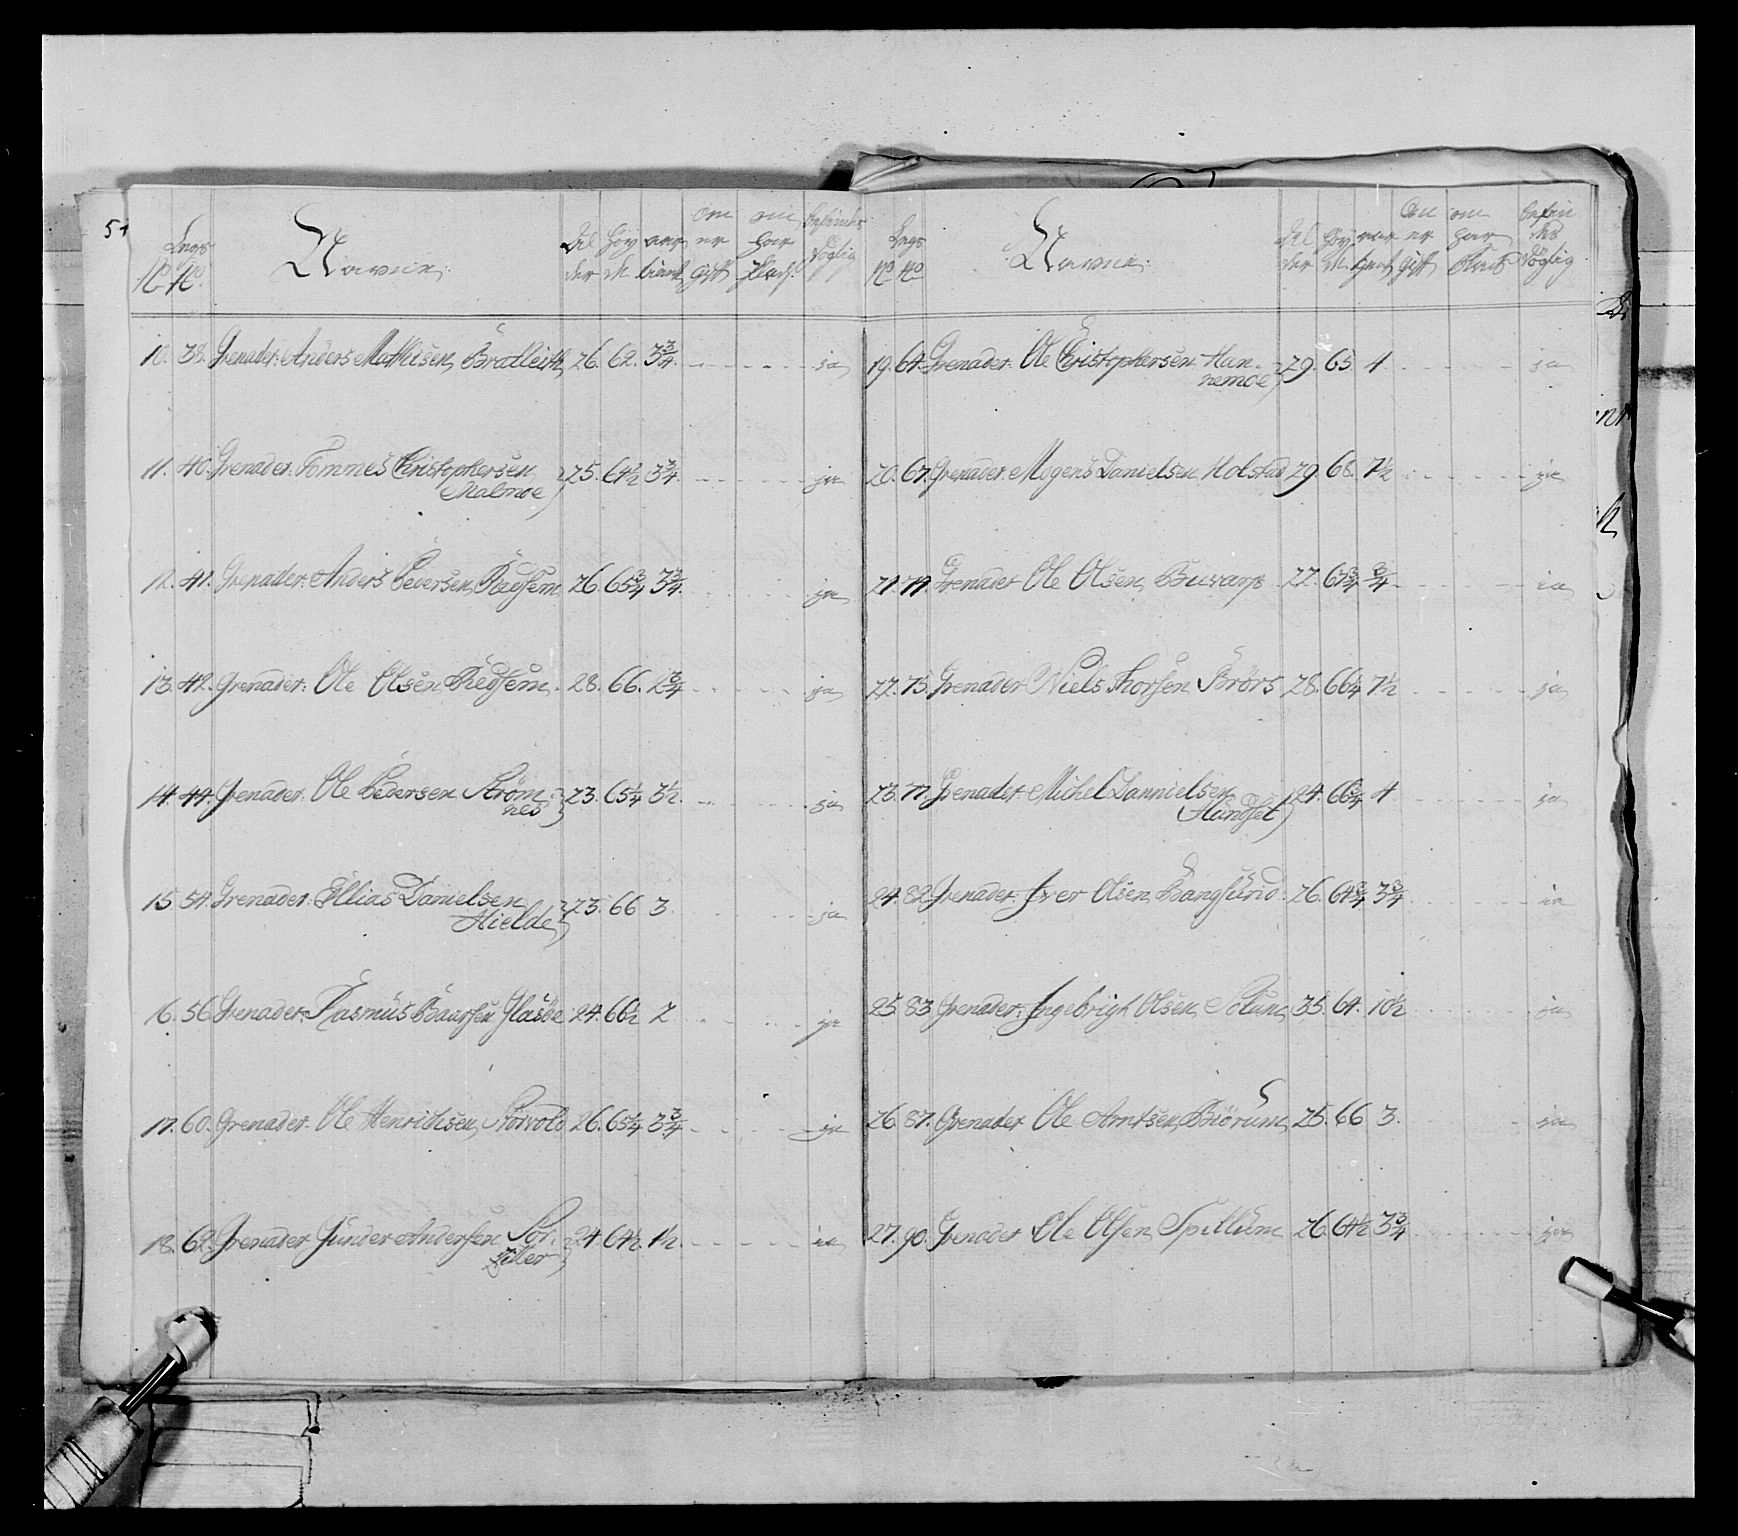 51
Legs
No No Navne: Al der Höy de aar tient om er gift om har Befindes Döglig
10. 38. Grenader: Anders Mathisen, Bratleith, 26. 62. 3 3/4. ja
11. 40. Grenader: Tommes Christophersen
Malmoe 25. 64 1/2 3 3/4. ja
12. 41. Grenader: Anders Pedersen, Redsem 26. 65 3/4 3 3/4. ja
13. 42. Grenader: Ole Olsen Redsem. 28. 66. 2 3/4 ja
14. 44. Grenader: Ole Pedersen Ström-
nes 23. 65 1/4 3 1/2. ja
15. 54. Grenader: Ellias Danielsen
Hielde 23. 66 3. ja
16. 56. Grenader: Rasmus Baarsen Glasöe 24. 66 1/2 2 ja
17. 60. Grenader: Ole Henrichsen, Storvold 26. 65 1/4 3 3/4 ja
18. 62. Grenader Gunder Andersen Sör-
Tiller 24. 64 1/2. 1 1/2. ja
Legs
No No Navne: Al der Höy de aar tient Om er gift om har Befin des Döglig
19. 64. Grenader: Ole Christophersen Han-
nemoe 29. 65 4 ja
20. 67. Grenader: Mogens Danielsen Holstad 29. 68. 7 1/2 ja
21. 74. Grenader Ole Olsen, Buvarp 22. 67 3/4 3/4 ja
22. 75. Grenader Niels Thorsen Brörs 28. 66 1/4 7 1/2 ja
23. 77. Grenader: Michel Dannielsen
Handset 24. 66 3/4 4 ja
24. 82. Grenader: Iver Olsen, Bangsund 26. 64 3/4 3 3/4 ja
25. 83. Grenader: Ingebrigt Olsen, Solum 35. 64. 10 1/2 ja
26. 87. Grenader Ole Arntsen, Biörum, 25. 66 3. ja
27. 90. Grenader Ole Olsen Spillum 26. 64 1/2 3 3/4 ja